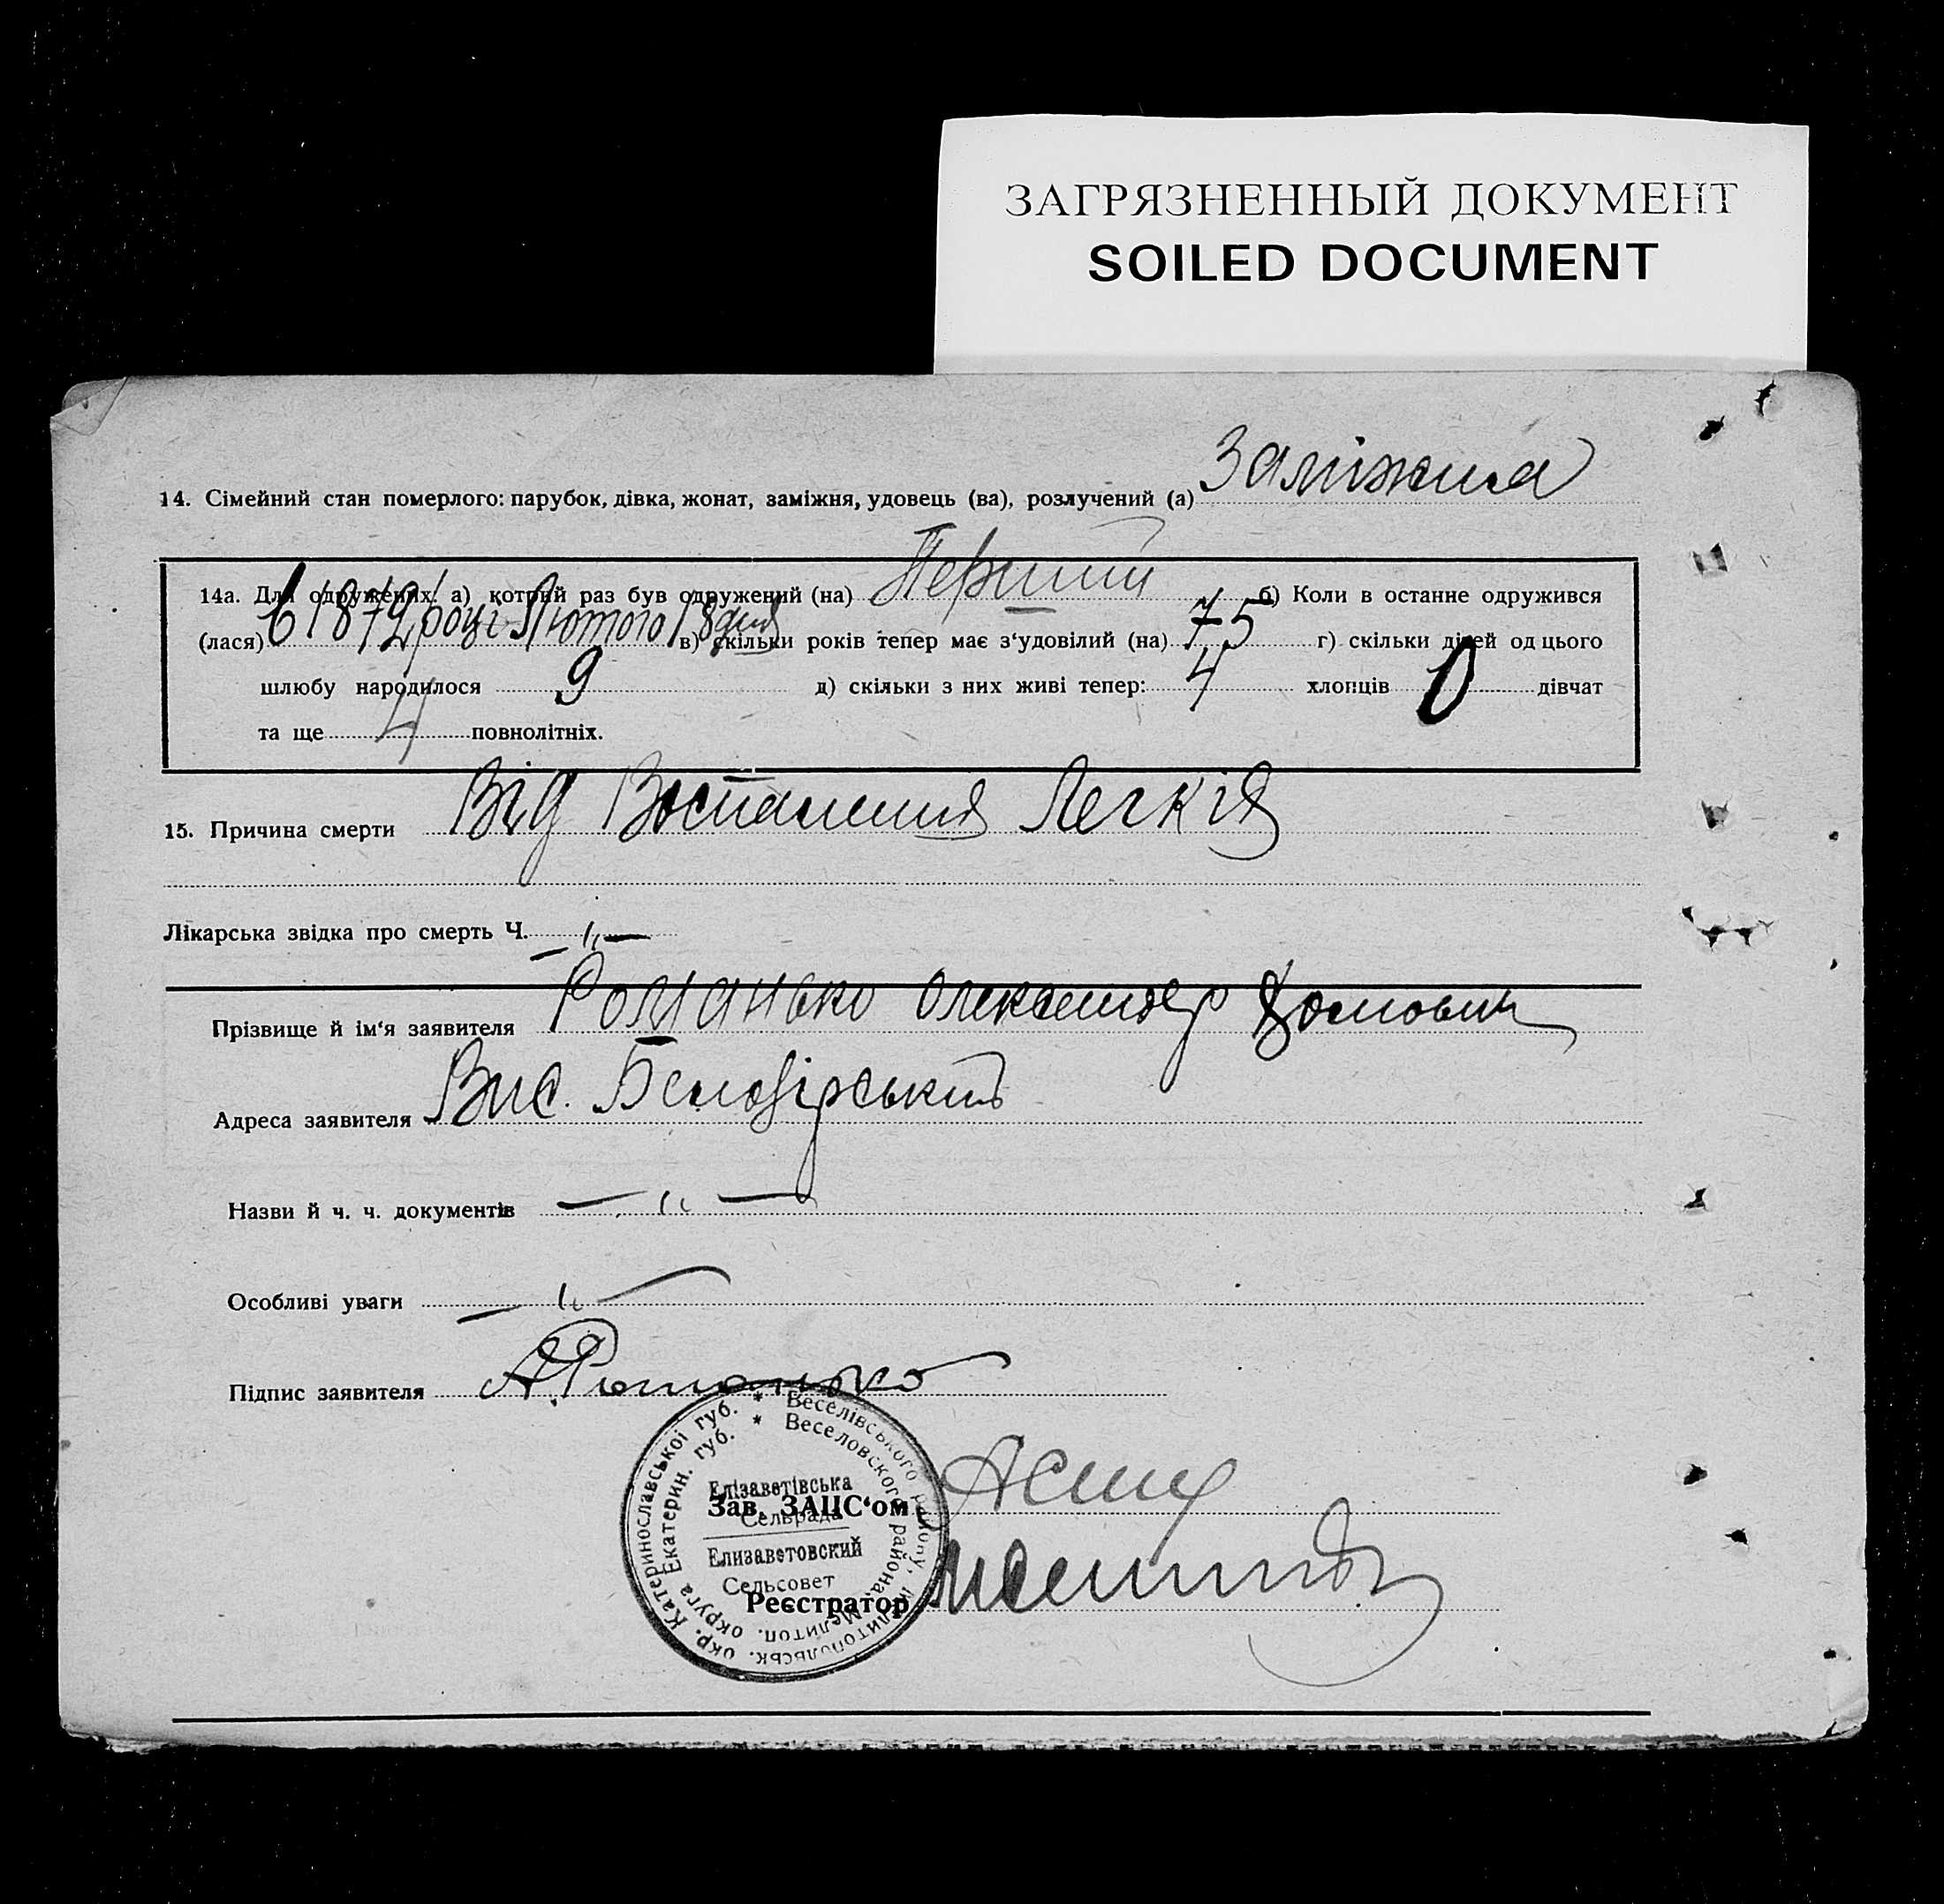 ЗАГРЯЗНЕННЫЙ ДОКУМЕНТ
SOILED DOCUMENT
14. Сімейний стан померлого: парубок, дівка, жонат, заміжня, удовець (ва), розлучений (а) Заміжня
14а. Для одружених: а) котрий раз був одружений (на) Перший б) Коли в останне одружився
(лася) в 1872 році Лютого 18 дня в) скільки років тепер має з‘удовілий (на) 75 г) скільки дітей од цього
шлюбу народилося 9 д) скільки з них живі тепер: 4 хлопців 0 дівчат
та ще 4 повнолітніх.
15. Причина смерти Від Воспаления Легкія
Лікарська звідка про смерть Ч. — " —
Прізвище й ім‘я заявителя Романько Олександер
Адреса заявителя Вис. Білозірський
Назви й ч. ч. документів — " —
Особливі уваги — " —
Підпис заявителя А.Романько
Зав. ЗАЦС‘ом
Реєстратор
* Веселівського району, Мелитопольськ. окр. Катеринославської губ.
* Веселовского района, Мелитоп. округа Екатерин. губ.
Елізаветівська
Сельрада
Елизаветовский
Сельсовет